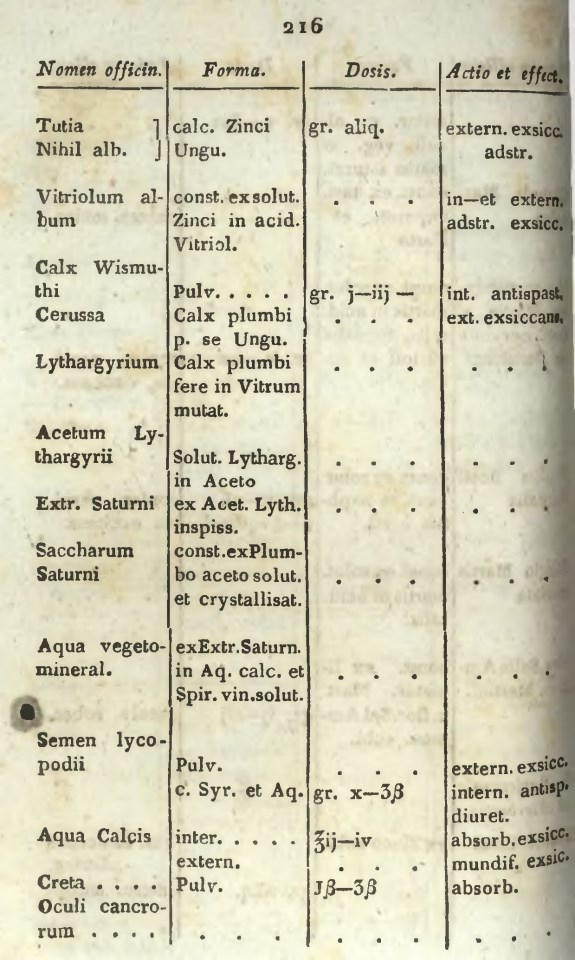 216
Nomen officin. Forma. Dosis. Actio et effect.
Tutia ] calc. Zinci gr. aliq. extern. exsicc.
Nihil alb. ] Ungu. adstr.
Vitriolum al- const. ex solut. . . . in—et extern.
bum Zinci in acid. adstr. exsicc.
Vitriol.
Calx Wismu-
thi Pulv. . . . . gr. j—iij — int. antispast.
Cerussa Calx plumbi . . . ext. exsiccans.
p. se Ungu.
Lythargyrium Calx plumbi . . . . . .
fere in Vitrum
mutat.
Acetum Ly-
thargyrii Solut. Lytharg. . . . . . .
in Aceto
Extr. Saturni ex Acet. Lyth. . . . . . .
inspiss.
Saccharum const. ex Plum-
Saturni bo aceto solut. . . . . . .
et crystallisat.
Aqua vegeto- ex Extr. Saturn.
mineral. in Aq. calc. et . . . . . .
Spir. vin. solut.
Semen lyco-
podii Pulv. . . . extern. exsicc.
c. Syr. et Aq. gr. x—ʒβ intern. antisp.
diuret.
Aqua Calcis inter. . . . . ℥ij—iv absorb. exsicc.
extern. . . . mundif. exsic.
Creta . . . . Pulv. Jβ—ʒβ absorb.
Oculi cancro-
rum . . . . . . . . . . . . .